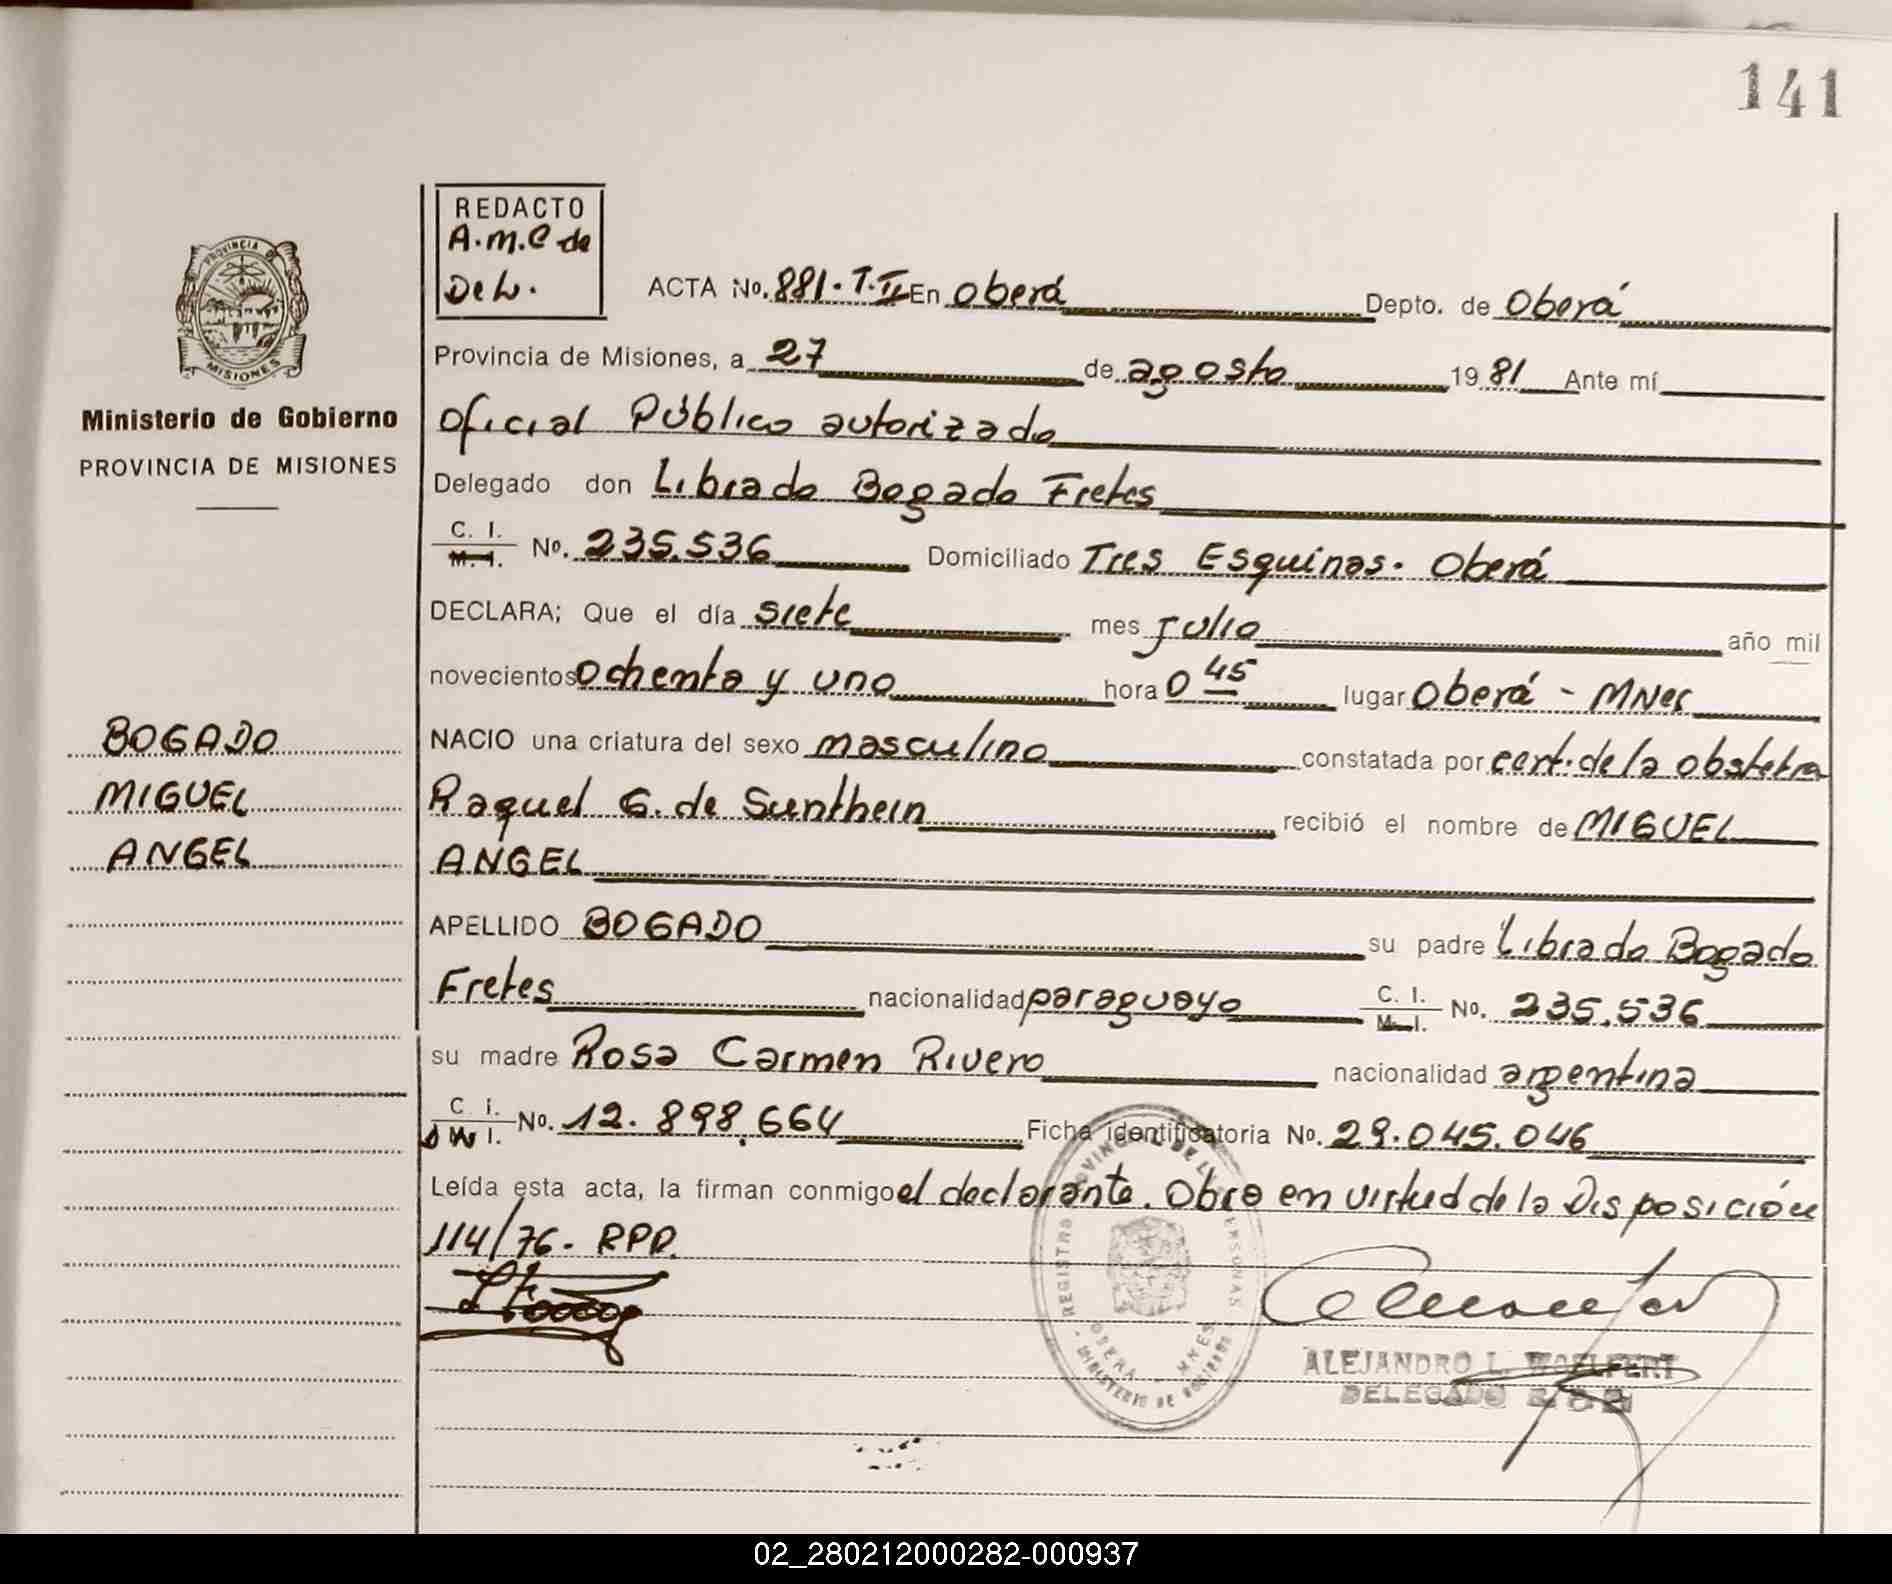 141
REDACTO
A.M.C de
De L.
PROVINCIA DE
MISIONES
Ministerio de Gobierno
PROVINCIA DE MISIONES
ACTA No. 881. T. II En Oberá Depto. de Oberá
Provincia de Misiones, a 27 de agosto 19 81 Ante mí
Oficial Público autorizado
Delegado don Librado Bogado Fretes
C. I. M. I. No. 235.536 Domiciliado Tres Esquinas. Oberá
DECLARA; Que el día siete mes julio año mil
novecientos ochenta y uno hora 0 45 lugar Oberá - MNes
BOGADO
MIGUEL
ANGEL
NACIO una criatura del sexo masculino constatada por cert. de la obstetra
Raquel G. de Sunthein recibió el nombre de MIGUEL
ANGEL
APELLIDO BOGADO su padre Librado Bogado
Fretes nacionalidad paraguayo C. I. M. I. No. 235.536
su madre Rosa Carmen Rivero nacionalidad argentina
C. I. D N I. No. 12.898.664 Ficha identificatoria No. 29.045.046
Leída esta acta, la firman conmigo el declarante. Obro en virtud de la Disposición
114/76. RPP.
REGISTRO PROVINCIAL DE LAS PERSONAS
OBERA - MNES
MINISTERIO DE GOBIERNO
ALEJANDRO L. WOELFERT
DELEGADO
02_280212000282-000937